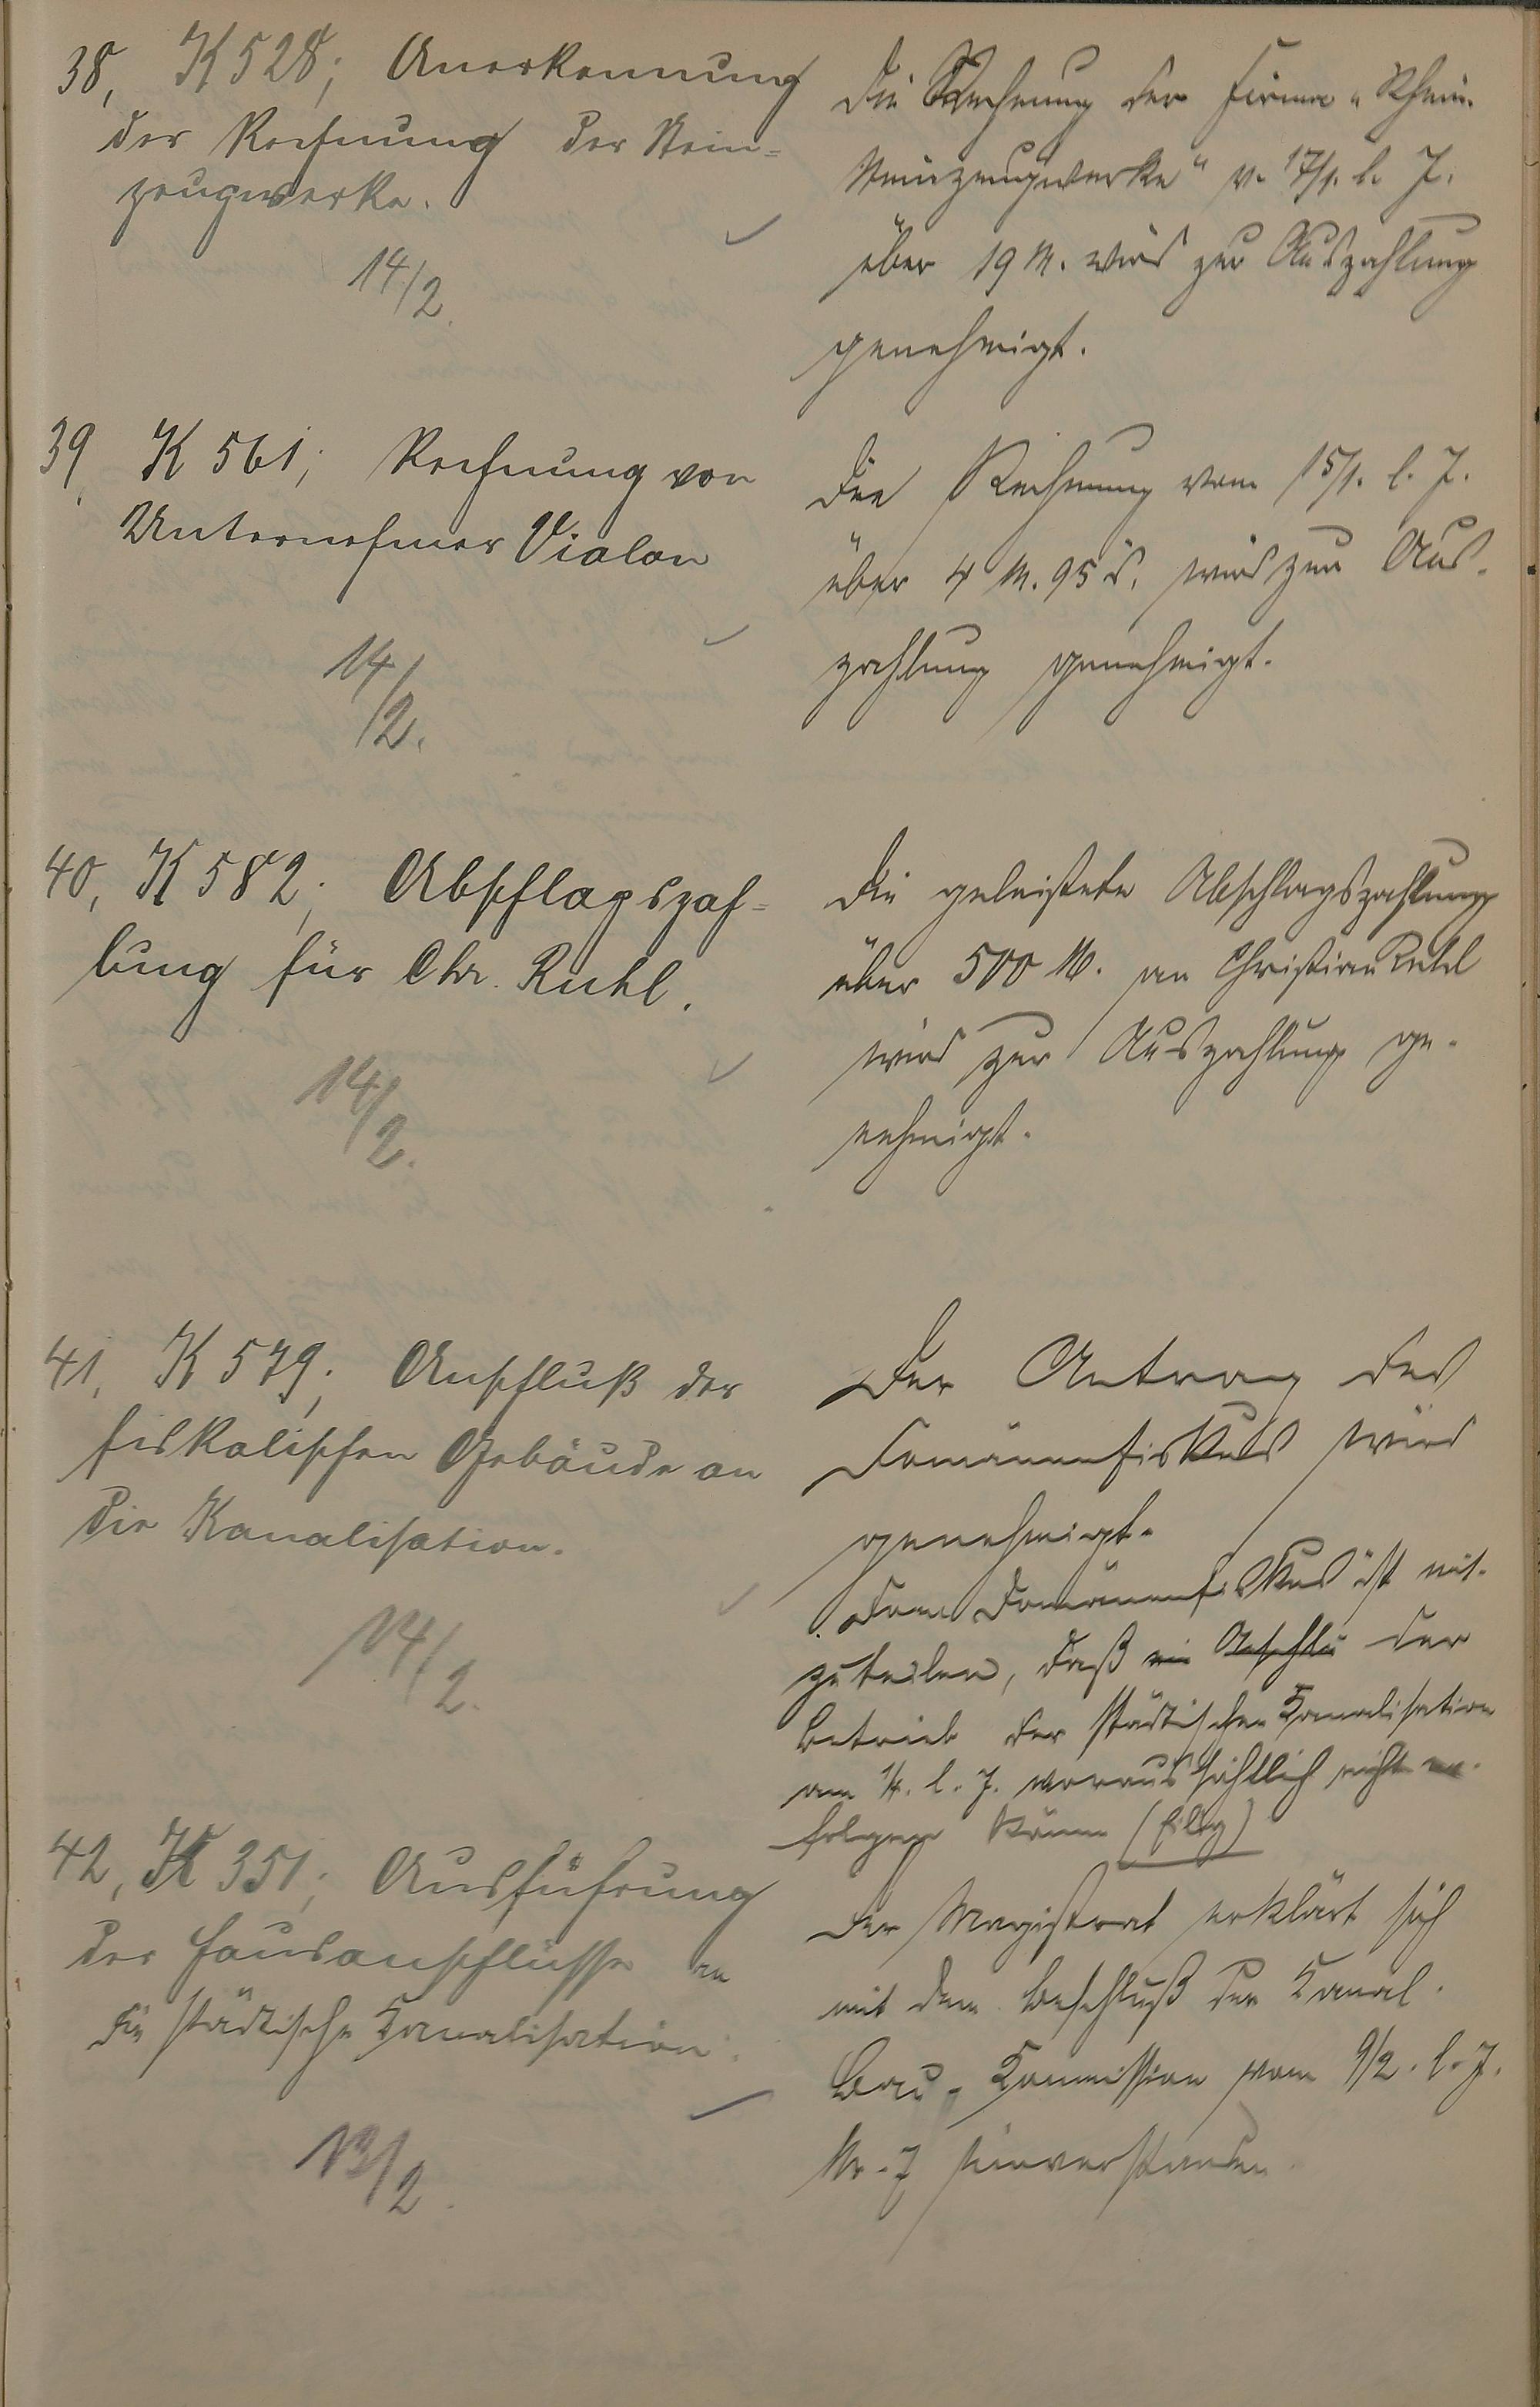 38, K 528; Anerkennung
der Rechnung der Stein-
zeugwerke.
14/2.
Die Rechnung der Firma „Rhein.
Steinzeugwerke“ v. 17/1. l. J.
über 19 M. wird zur Auszahlung
genehmigt.
39, K 561; Rechnung von
Unternehmer Vialon
14/2.
Die Rechnung vom 15/1. l. J.
über 4 M. 95 d. wird zur Aus-
zahlung genehmigt.
40, K 582; Abschlagszah-
lung für Chr. Ruhl.
14/2.
Die geleistete Abschlagszahlung
über 500 M. an Christian Ruhl
wird zur Auszahlung ge-
nehmigt.
41, K 579; Anschluß der
fiskalischen Gebäude an
die Kanalisation.
14/2.
Der Antrag des
Domänenfiskus wird
genehmigt.
Dem Domänenfiskus ist mit-
zuteilen, daß ein Anschlu der
Betrieb der städtischen Kanalisation
am 1/4. l. J. voraussichtlich nicht er-
folgen könne (Eilig)
42, K 351; Ausführung
der Hausanschlüsse an
die städtische Kanalisation.
13/2.
Der Magistrat erklärt sich
mit dem Beschluß der Kanal-
Bau-Kommission vom 9/2. l. J.
Nr. 7 einverstanden.